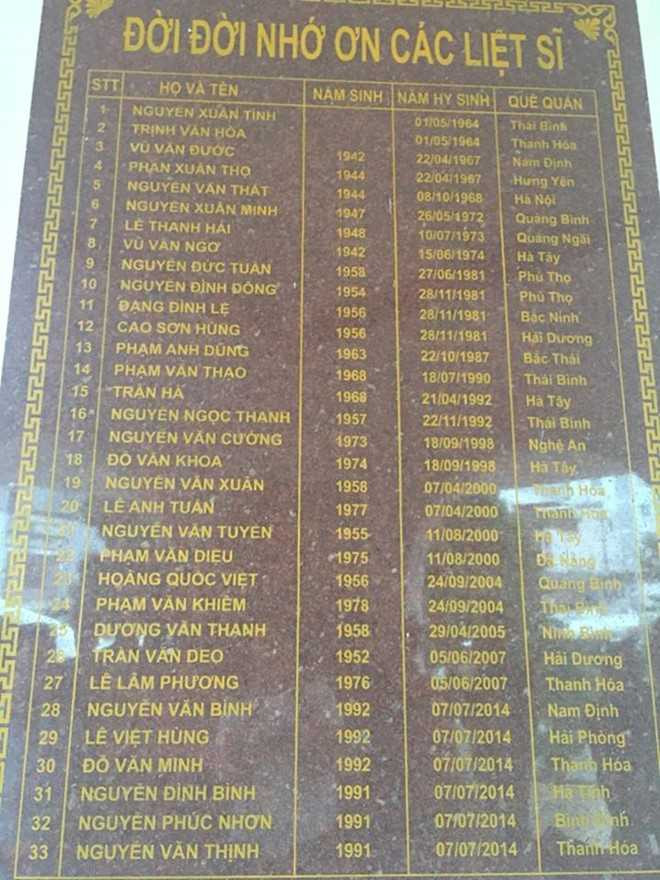 ĐỜI ĐỜI NHỚ ƠN CÁC LIỆT SĨ
STT HỌ VÀ TÊN NĂM SINH NĂM HY SINH QUÊ QUÁN
1 NGUYỄN XUÂN TÌNH 01/05/1964 Thái Bình
2 TRỊNH VĂN HÒA 01/05/1964 Thanh Hóa
3 VŨ VĂN ĐƯỚC 1942 22/04/1967 Nam Định
4 PHAN XUÂN THỌ 1944 22/04/1967 Hưng Yên
5 NGUYỄN VĂN THẤT 1944 08/10/1968 Hà Nội
6 NGUYỄN XUÂN MINH 1947 26/05/1972 Quảng Bình
7 LÊ THANH HẢI 1948 10/07/1973 Quảng Ngãi
8 VŨ VĂN NGƠ 1942 15/06/1974 Hà Tây
9 NGUYỄN ĐỨC TUẤN 1958 27/06/1981 Phú Thọ
10 NGUYỄN ĐÌNH ĐÔNG 1954 28/11/1981 Phú Thọ
11 ĐẶNG ĐÌNH LỆ 1956 28/11/1981 Bắc Ninh
12 CAO SƠN HÙNG 1956 28/11/1981 Hải Dương
13 PHẠM ANH DŨNG 1963 22/10/1987 Bắc Thái
14 PHẠM VĂN THẠO 1968 18/07/1990 Thái Bình
15 TRẦN HÀ 1968 21/04/1992 Hà Tây
16 NGUYỄN NGỌC THANH 1957 22/11/1992 Thái Bình
17 NGUYỄN VĂN CƯỜNG 1973 18/09/1998 Nghệ An
18 ĐỖ VĂN KHOA 1974 18/09/1998 Hà Tây
19 NGUYỄN VĂN XUÂN 1958 07/04/2000 Thanh Hóa
20 LÊ ANH TUẤN 1977 07/04/2000 Thanh Hóa
21 NGUYỄN VĂN TUYÊN 1955 11/08/2000 Hà Tây
22 PHẠM VĂN DIỆU 1975 11/08/2000 Đà Nẵng
23 HOÀNG QUỐC VIỆT 1956 24/09/2004 Quảng Bình
24 PHẠM VĂN KHIÊM 1978 24/09/2004 Thái Bình
25 DƯƠNG VĂN THANH 1958 29/04/2005 Ninh Bình
26 TRẦN VĂN DEO 1952 05/06/2007 Hải Dương
27 LÊ LÂM PHƯƠNG 1976 05/06/2007 Thanh Hóa
28 NGUYỄN VĂN BÌNH 1992 07/07/2014 Nam Định
29 LÊ VIỆT HÙNG 1992 07/07/2014 Hải Phòng
30 ĐỖ VĂN MINH 1992 07/07/2014 Thanh Hóa
31 NGUYỄN ĐÌNH BÌNH 1991 07/07/2014 Hà Tĩnh
32 NGUYỄN PHÚC NHƠN 1991 07/07/2014 Bình Định
33 NGUYỄN VĂN THỊNH 1991 07/07/2014 Thanh Hóa